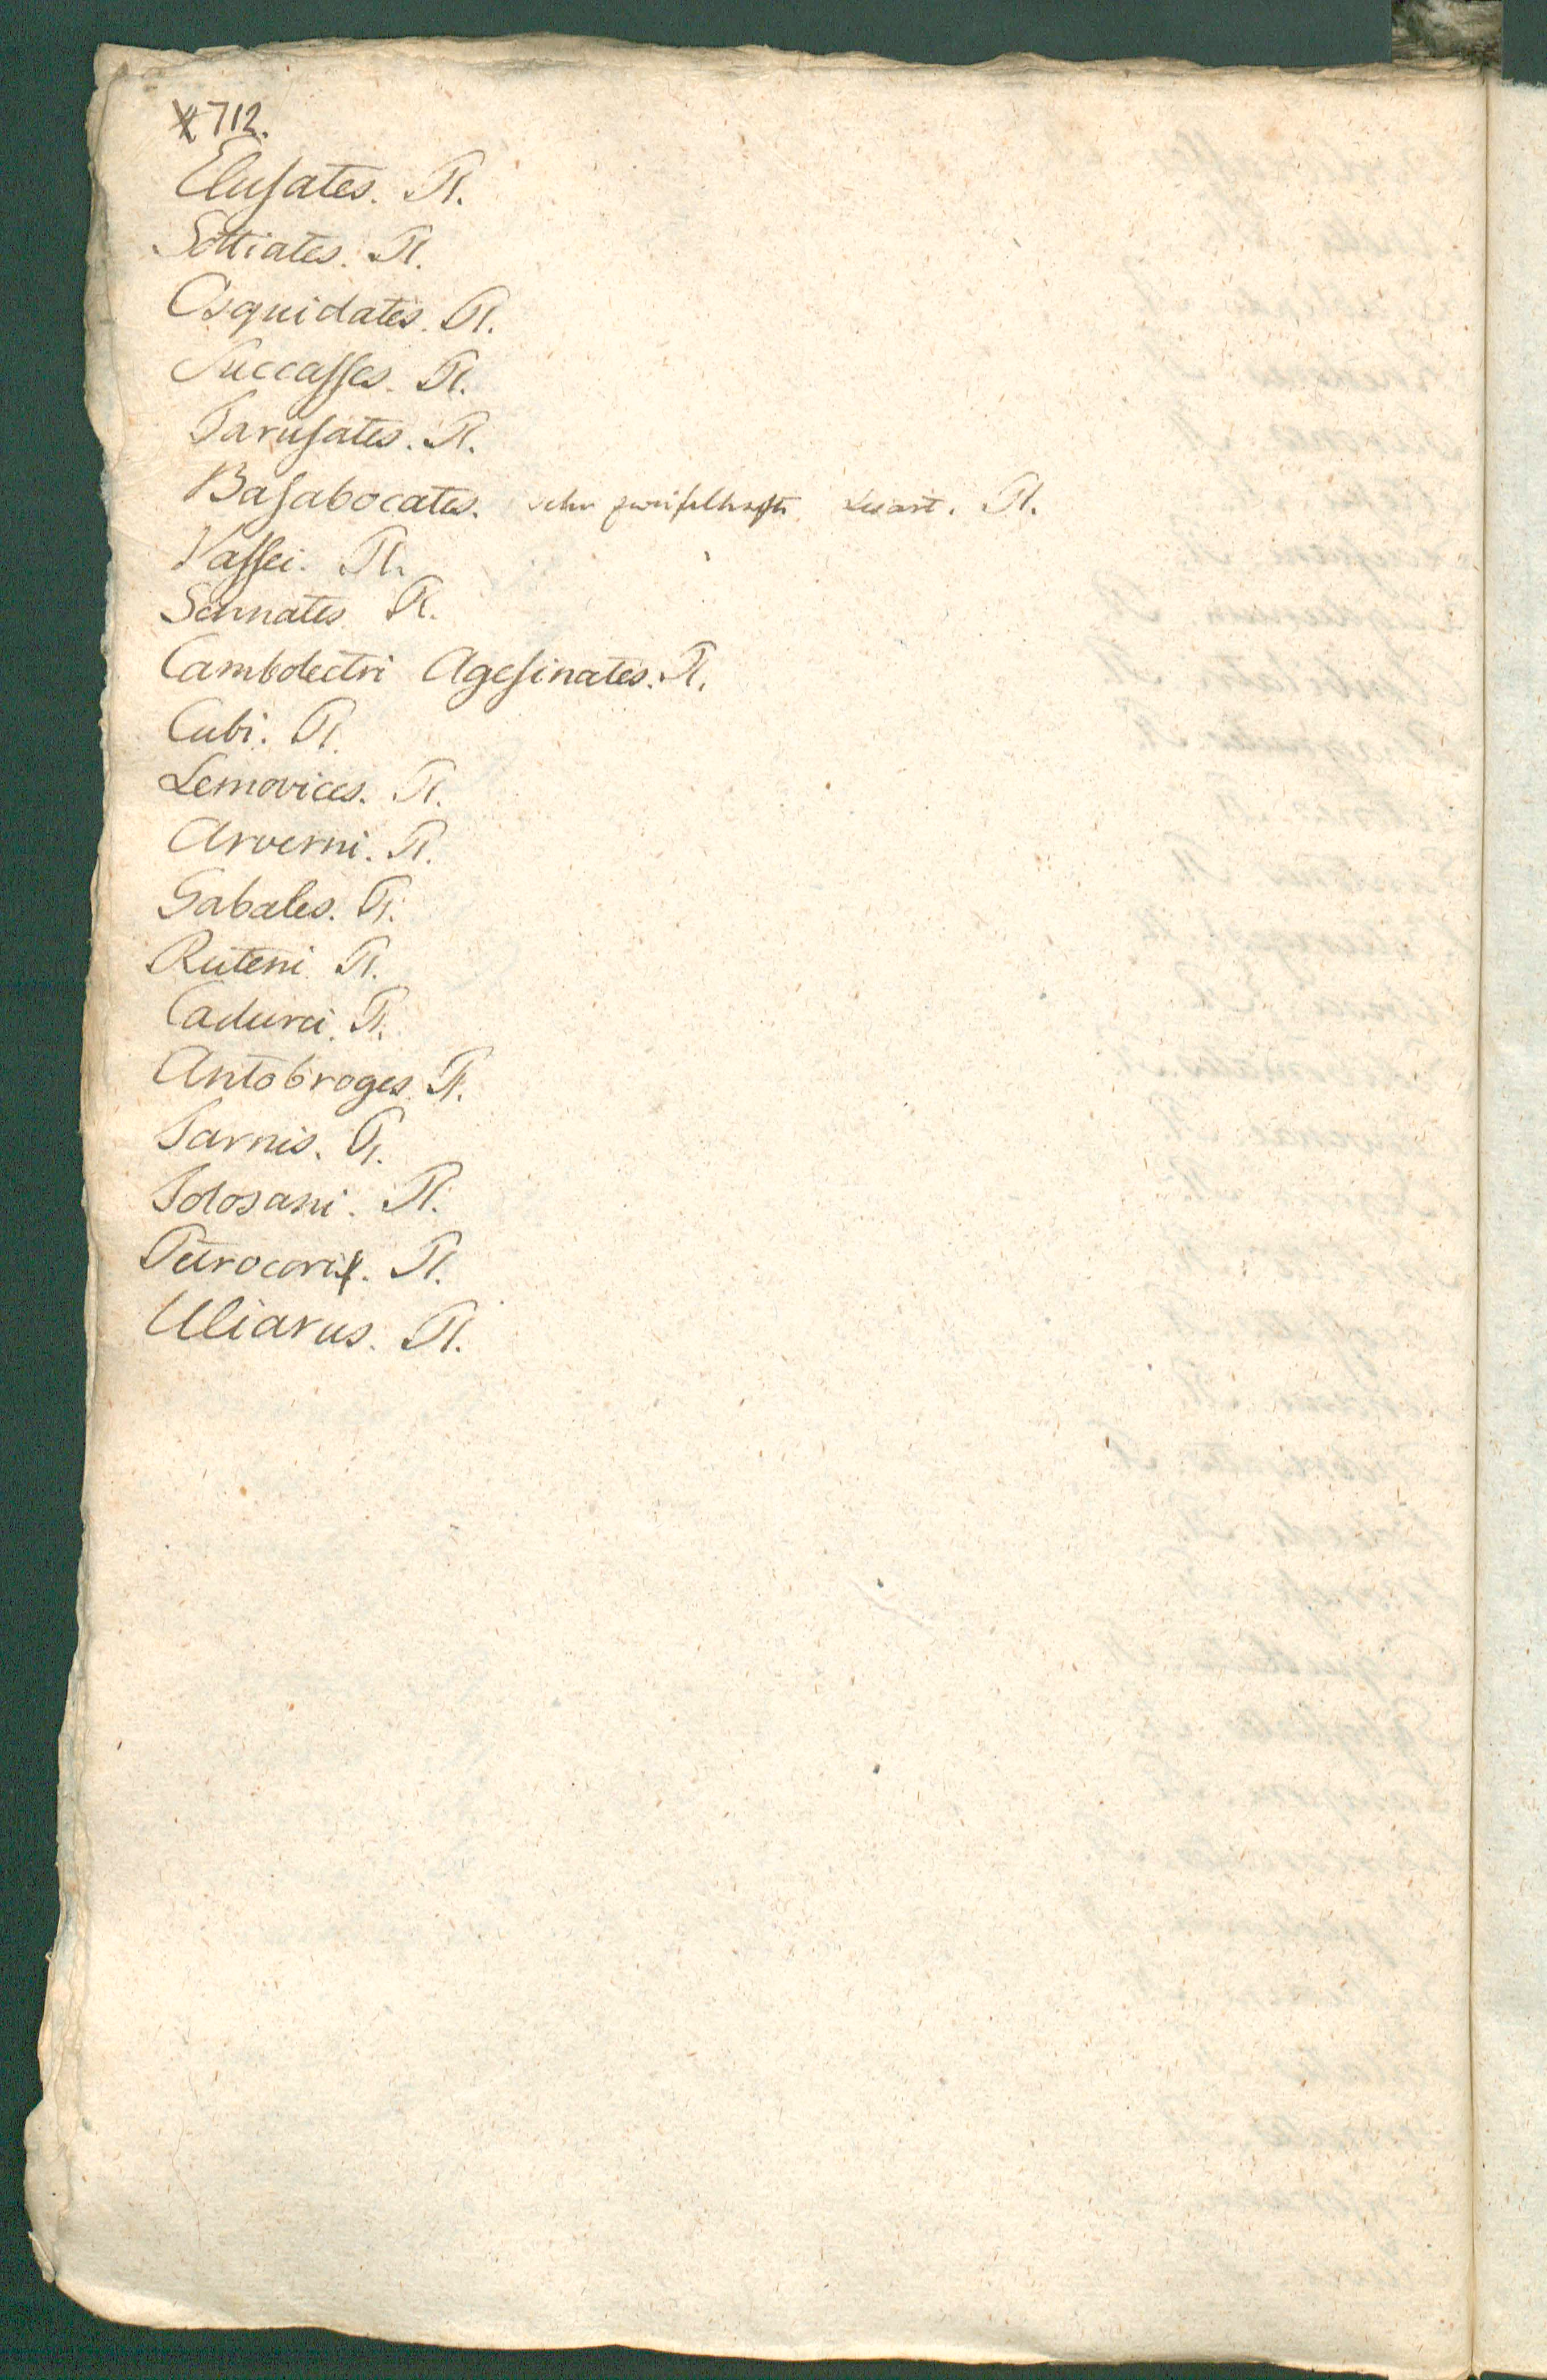 712.
Elusates. Pl.
Sottiates. Pl.
Osquidates. Pl.
Succasses. Pl.
Tarusates. Pl.
Basabocates. sehr zweifelhafte Lesart. Pl.
Vassei. Pl.
Sennates Pl.
Cambolectri Agesinates. Pl.
Cubi. Pl.
Lemovices. Pl.
Arverni. Pl.
Gabales. Pl.
Ruteni Pl.
Cadurci. Pl.
Antobroges. Pl.
Tarnis. Pl.
Tolosani. Pl.
Petrocori. Pl.
Uliarus. Pl.